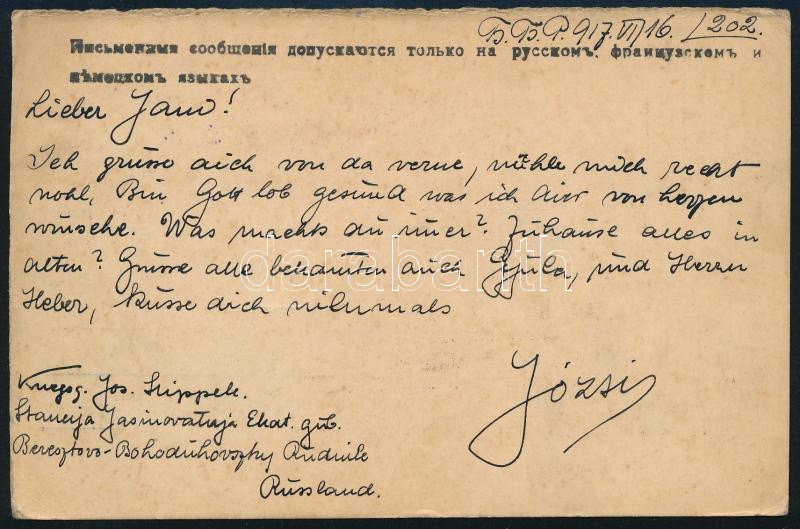 Б.Б.Р. 917. VI/16. /202.
Письменныя сообщенія допускаются только на русскомъ, французскомъ и
нѣмецкомъ языкахъ
Lieber Janó!
Ich grüsse dich von da verne, wühle mich recht
wohl, Bin Gott lob gesund was ich dier von herzen
wünsche. Was machts du imer? Zuhause alles in
alten? Grüsse alle bekannten auch Gyula, und Herrn
Heber, küsse dich vilmals
Józsi
Kriegsg. Jos. Stippek.
Stancija Jasinovatnaja Ekat. gub.
Beresztovo-Bohoduhovszky Rudnik
Russland.
darabanth